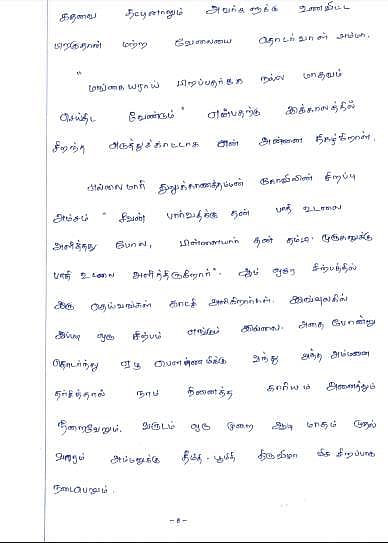 கதவை தட்டினாலும் அவர்களுக்கு உணவிட்ட
பிறகுதான் மற்ற வேலையை தொடர்வாள் அம்மா.
" மங்கையராய் பிறப்பதற்கு நல்ல மாதவம்
செய்திட வேண்டும் " என்பதற்கு இக்காலத்தில்
சிறந்த எடுத்துக்காட்டாக என் அன்னை திகழ்கிறாள்.
எல்லைமாரி துலுக்காணத்தம்மன் கோவிலின் சிறப்பு
அம்சம் " சிவன் பார்வதிக்கு தன் பாதி உடலை
அளித்தது போல, பிள்ளையார் தன் தம்பி முருகனுக்கு
பாதி உடலை அளித்திருக்கிறார் ". ஆம் ஒரே சிற்பத்தில்
இரு தெய்வங்கள் காட்சி அளிக்கிறார்கள். இவ்வுலகில்
இப்படி ஒரு சிற்பம் எங்கும் இல்லை. அதை போன்று
தொடர்ந்து ஏழு பௌர்ணமிக்கு வந்து அந்த அம்மனை
தரிசித்தால் நாம் நினைத்த காரியம் அனைத்தும்
நிறைவேறும். வருடம் ஒரு முறை ஆடி மாதம் முதல்
வாரம் அம்மனுக்கு தீமிதி - பூமிதி திருவிழா மிக சிறப்பாக
நடைபெறும்.
- 8 -